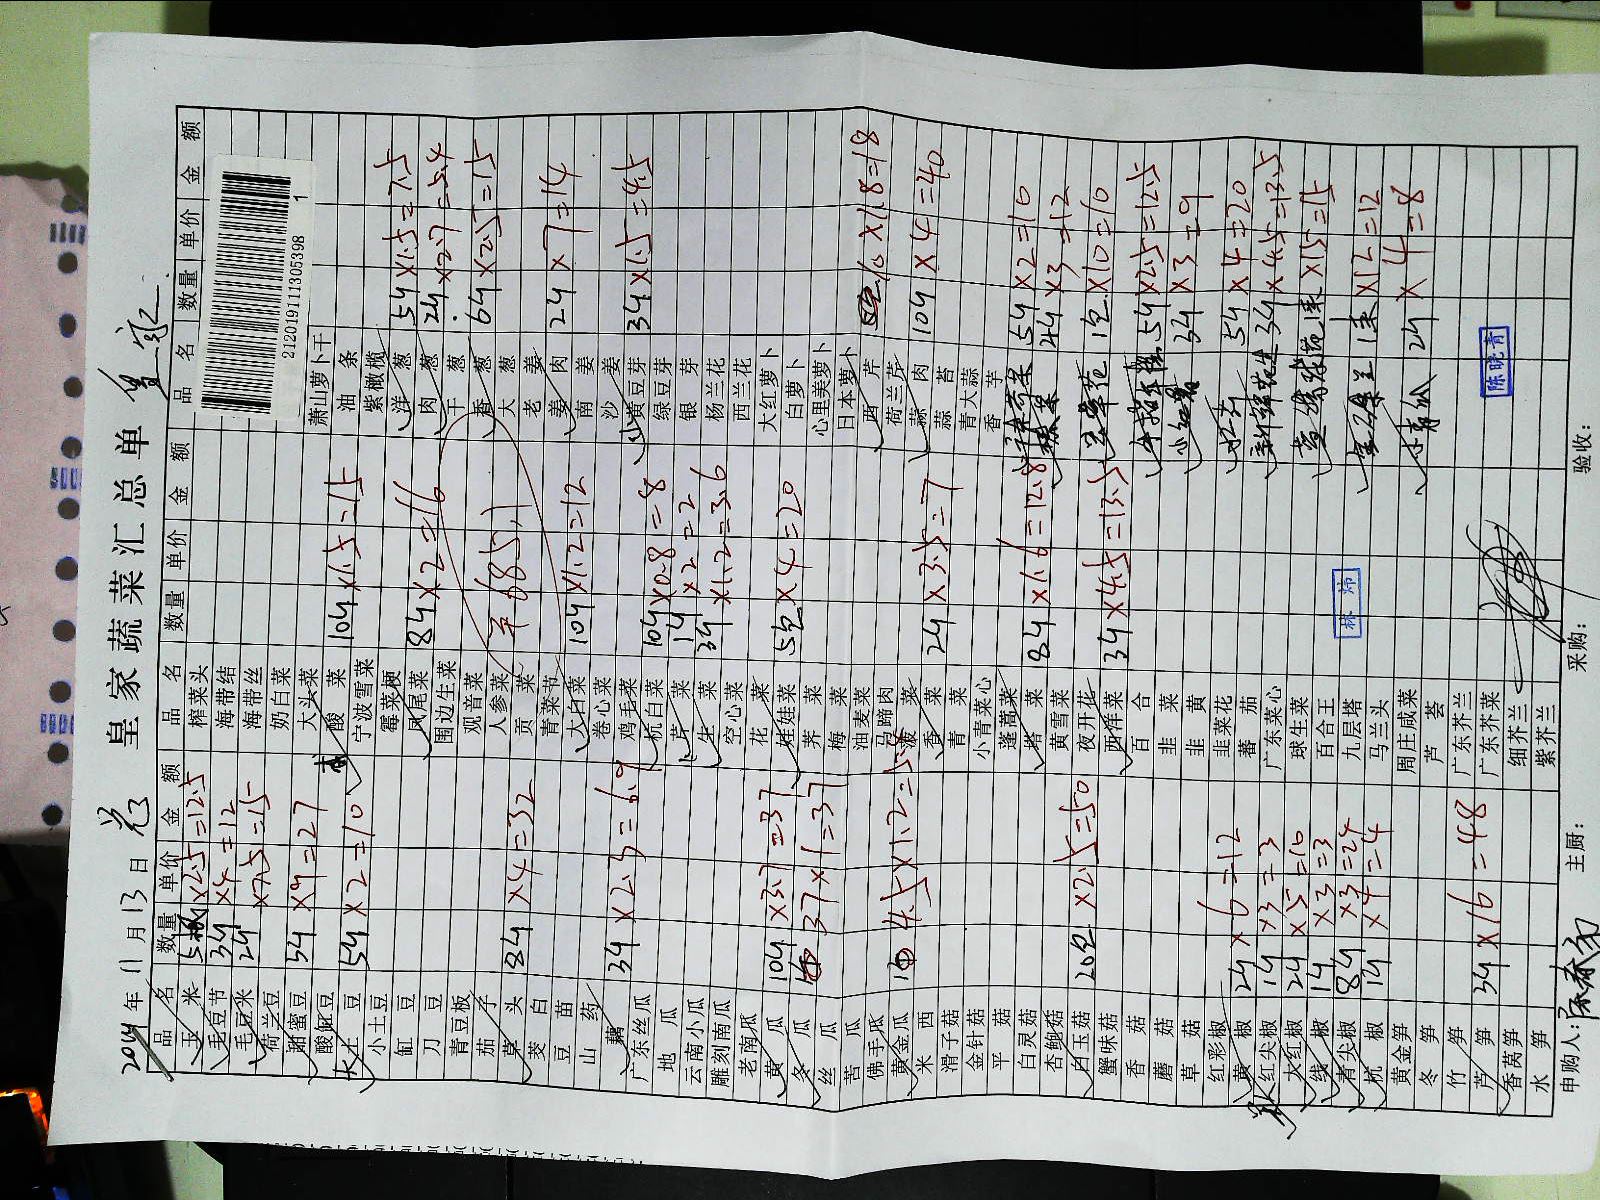 皇家蔬菜汇总单
2019年11月13日
品名 数量 单价 金额 品名 数量 单价 金额 品名 数量 单价 金额
玉米 ×2.5=12.5
毛豆节 3斤 ×4=12
毛豆米 2斤 ×7.5=15
荷兰豆
湘蜜豆 3斤 ×9=27
酸豇豆
大土豆 5斤 ×2=10
小土豆
缸豆
刀豆
青豆板
茄子
茭头 8斤 ×4=32
茭白
豆苗
山药
藕 3斤 ×2.3=6.9
广东丝瓜
地瓜
云南小瓜
雕刻南瓜
老南瓜
黄瓜 10斤 ×3.7=37
冬瓜 37×1=37
丝瓜
苦瓜
佛手瓜
黄金瓜 4.5×1.2=5.4
米西
滑子菇
金针菇
平菇
白灵菇
杏鲍菇
白玉菇 20包 ×2.5=50
蟹味菇
香菇
蘑菇
草菇
红彩椒
黄椒 2斤 ×6=12
红尖椒 1斤 ×3=3
大红椒 2斤 ×5=10
线椒 1斤 ×3=3
青尖椒 8斤 ×3=24
杭椒 1斤 ×4=4
黄金笋
冬笋
竹笋
芦笋 3斤 ×16=48
香莴笋
水笋
榨菜头
海带结
海带丝
奶白菜
大头菜
酸菜 10斤 ×1.5=15
宁波雪菜
霉菜梗
凤尾菜 8斤 ×2=16
围边生菜
观音菜
人参菜 685.1
贡菜
青菜节
大白菜 10斤 ×1.2=12
卷心菜
鸡毛菜
杭白菜 10斤 ×0.8=8
芹菜 1斤 ×2=2
生菜 3斤 ×1.2=3.6
空心菜
花菜
娃娃菜 5包 ×4=20
荠菜
梅菜
油麦菜
马蹄肉
菠菜
香菜 2斤 ×3.5=7
青菜
小青菜心
蓬蒿菜
塔菜 8斤 ×1.6=12.8
黄雪菜
夜开花
西洋菜 3斤 ×4.5=13.5
百合
韭菜
韭黄
韭菜花
蕃茄
广东菜心
球生菜
百合王
九层塔
马兰头
周庄咸菜
芦荟
广东芥兰
广东芥菜
细芥兰
紫芥兰
2120191113105398 1
萧山萝卜干
油条
紫橄榄
洋葱 5斤 ×1.5=7.5
肉葱 2斤 ×2.7=5.4
干葱
香葱 6斤 ×2.5=15
大葱
老姜
姜肉 2斤 ×7=14
南姜
沙姜
黄豆芽 3斤 ×1.5=4.5
绿豆芽
银芽
杨兰花
西兰花
大红萝卜
白萝卜
心里美萝卜
日本萝卜
西芹 10×1.8=18
荷兰芹
蒜肉 10斤 ×4=40
蒜苔
青大蒜
香芋
5斤 ×2=10
2斤 ×3=12
1包 ×10=10
5斤 ×2.5=12.5
3斤 ×3=9
5斤 ×4=20
3斤 ×4.5=13.5
×15=15
×12=12
2斤 ×4=8
林炜
陈晓青
申购人： 主厨： 采购： 验收：